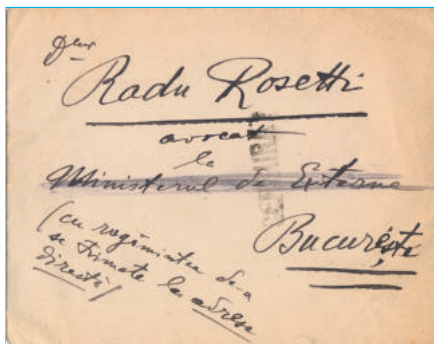 Dlui
Radu Rosetti
avocat
la
Ministerul de Externe
București
(cu rugămintea de a
se trimete la adresa
directă)